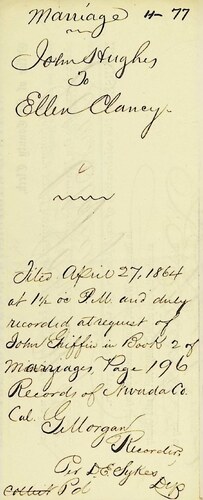 Marriage 4-77
John Hughes
To
Ellen Clancy
Filed April 27, 1864
at 1½ oc P.M and duly
recorded at request of
John Griffin in Book 2 of
Marriages, Page 196
Records of Nevada Co.
Cal. G Morgan
Recorder,
Per D E Sykes
Collect Pd Dep